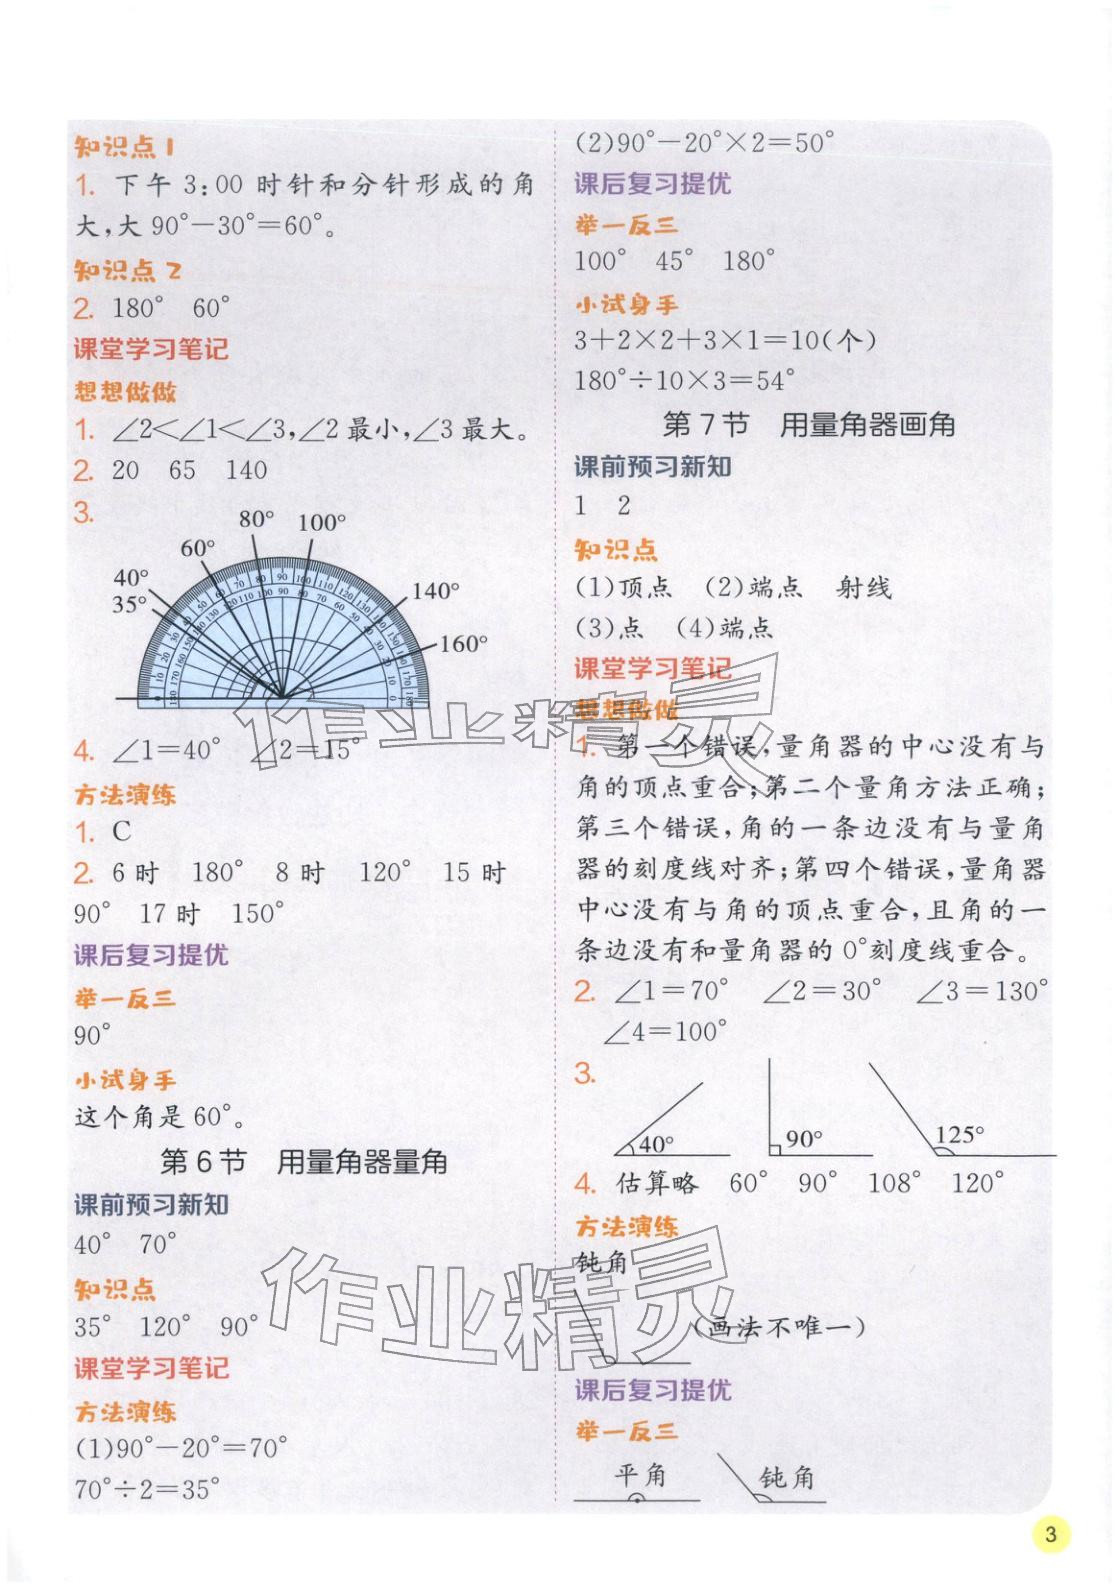 知识点 1
1. 下午 3:00 时针和分针形成的角
大,大 90°-30°=60°。
知识点 2
2. 180° 60°
课堂学习笔记
想想做做
1. ∠2<∠1<∠3,∠2 最小,∠3 最大。
2. 20 65 140
3.
80° 100°
60°
40°
35°
140°
160°
4. ∠1=40° ∠2=15°
方法演练
1. C
2. 6 时 180° 8 时 120° 15 时
90° 17 时 150°
课后复习提优
举一反三
90°
小试身手
这个角是 60°。
第 6 节 用量角器量角
课前预习新知
40° 70°
知识点
35° 120° 90°
课堂学习笔记
方法演练
(1)90°-20°=70°
70°÷2=35°
(2)90°-20°×2=50°
课后复习提优
举一反三
100° 45° 180°
小试身手
3+2×2+3×1=10(个)
180°÷10×3=54°
第 7 节 用量角器画角
课前预习新知
1 2
知识点
(1)顶点 (2)端点 射线
(3)点 (4)端点
课堂学习笔记
想想做做
1. 第一个错误,量角器的中心没有与
角的顶点重合;第二个量角方法正确;
第三个错误,角的一条边没有与量角
器的刻度线对齐;第四个错误,量角器
中心没有与角的顶点重合,且角的一
条边没有和量角器的 0°刻度线重合。
2. ∠1=70° ∠2=30° ∠3=130°
∠4=100°
3.
40° 90° 125°
4. 估算略 60° 90° 108° 120°
方法演练
钝角
(画法不唯一)
课后复习提优
举一反三
平角 钝角
3
作业精灵
作业精灵